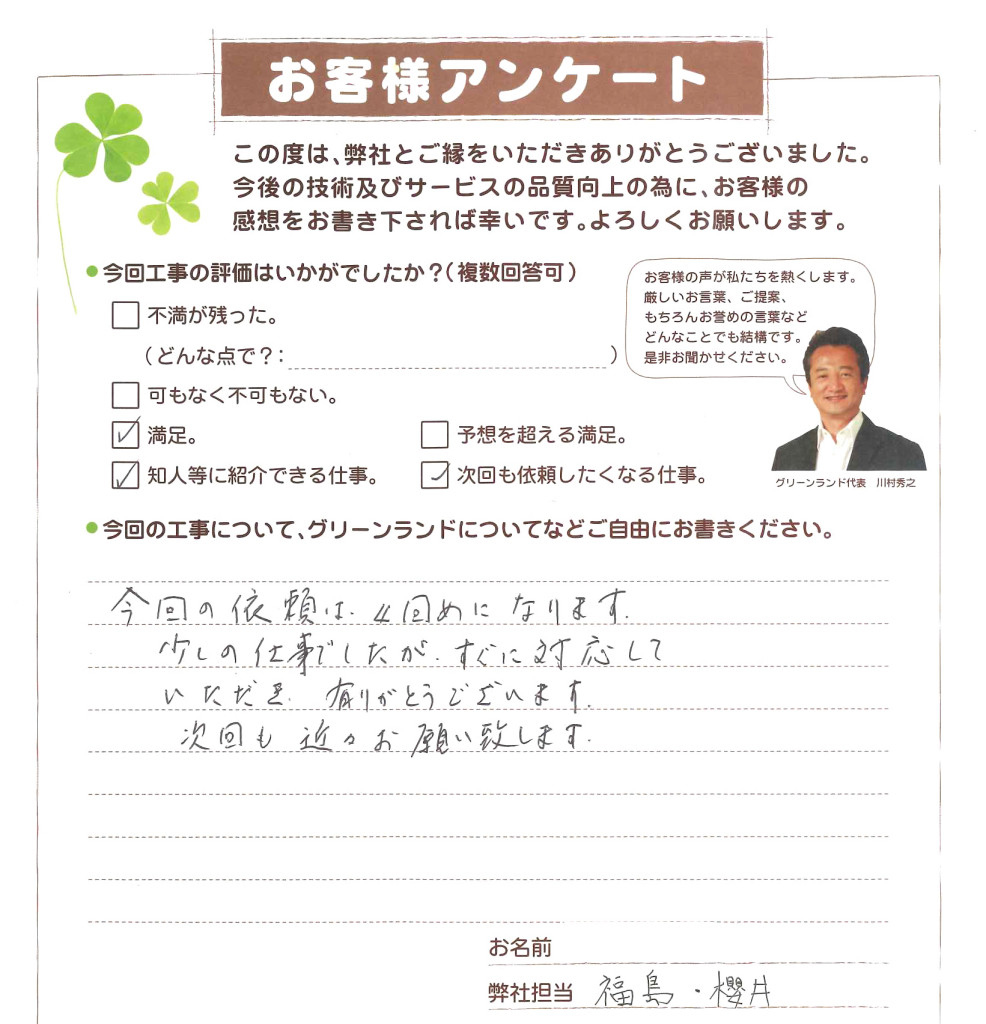 お客様アンケート
この度は、弊社とご縁をいただきありがとうございました。
今後の技術及びサービスの品質向上の為に、お客様の
感想をお書き下されば幸いです。よろしくお願いします。
●今回工事の評価はいかがでしたか？（複数回答可）
不満が残った。
（どんな点で？：　　　　）
可もなく不可もない。
満足。
予想を超える満足。
知人等に紹介できる仕事。
次回も依頼したくなる仕事。
お客様の声が私たちを熱くします。
厳しいお言葉、ご提案、
もちろんお誉めの言葉など
どんなことでも結構です。
是非お聞かせください。
グリーンランド代表　川村秀之
●今回の工事について、グリーンランドについてなどご自由にお書きください。
今回の依頼は、4回めになります。
少しの仕事でしたが、すぐに対応して
いただき、有りがとうございます。
次回も近々お願い致します。
お名前
弊社担当　福島・櫻井